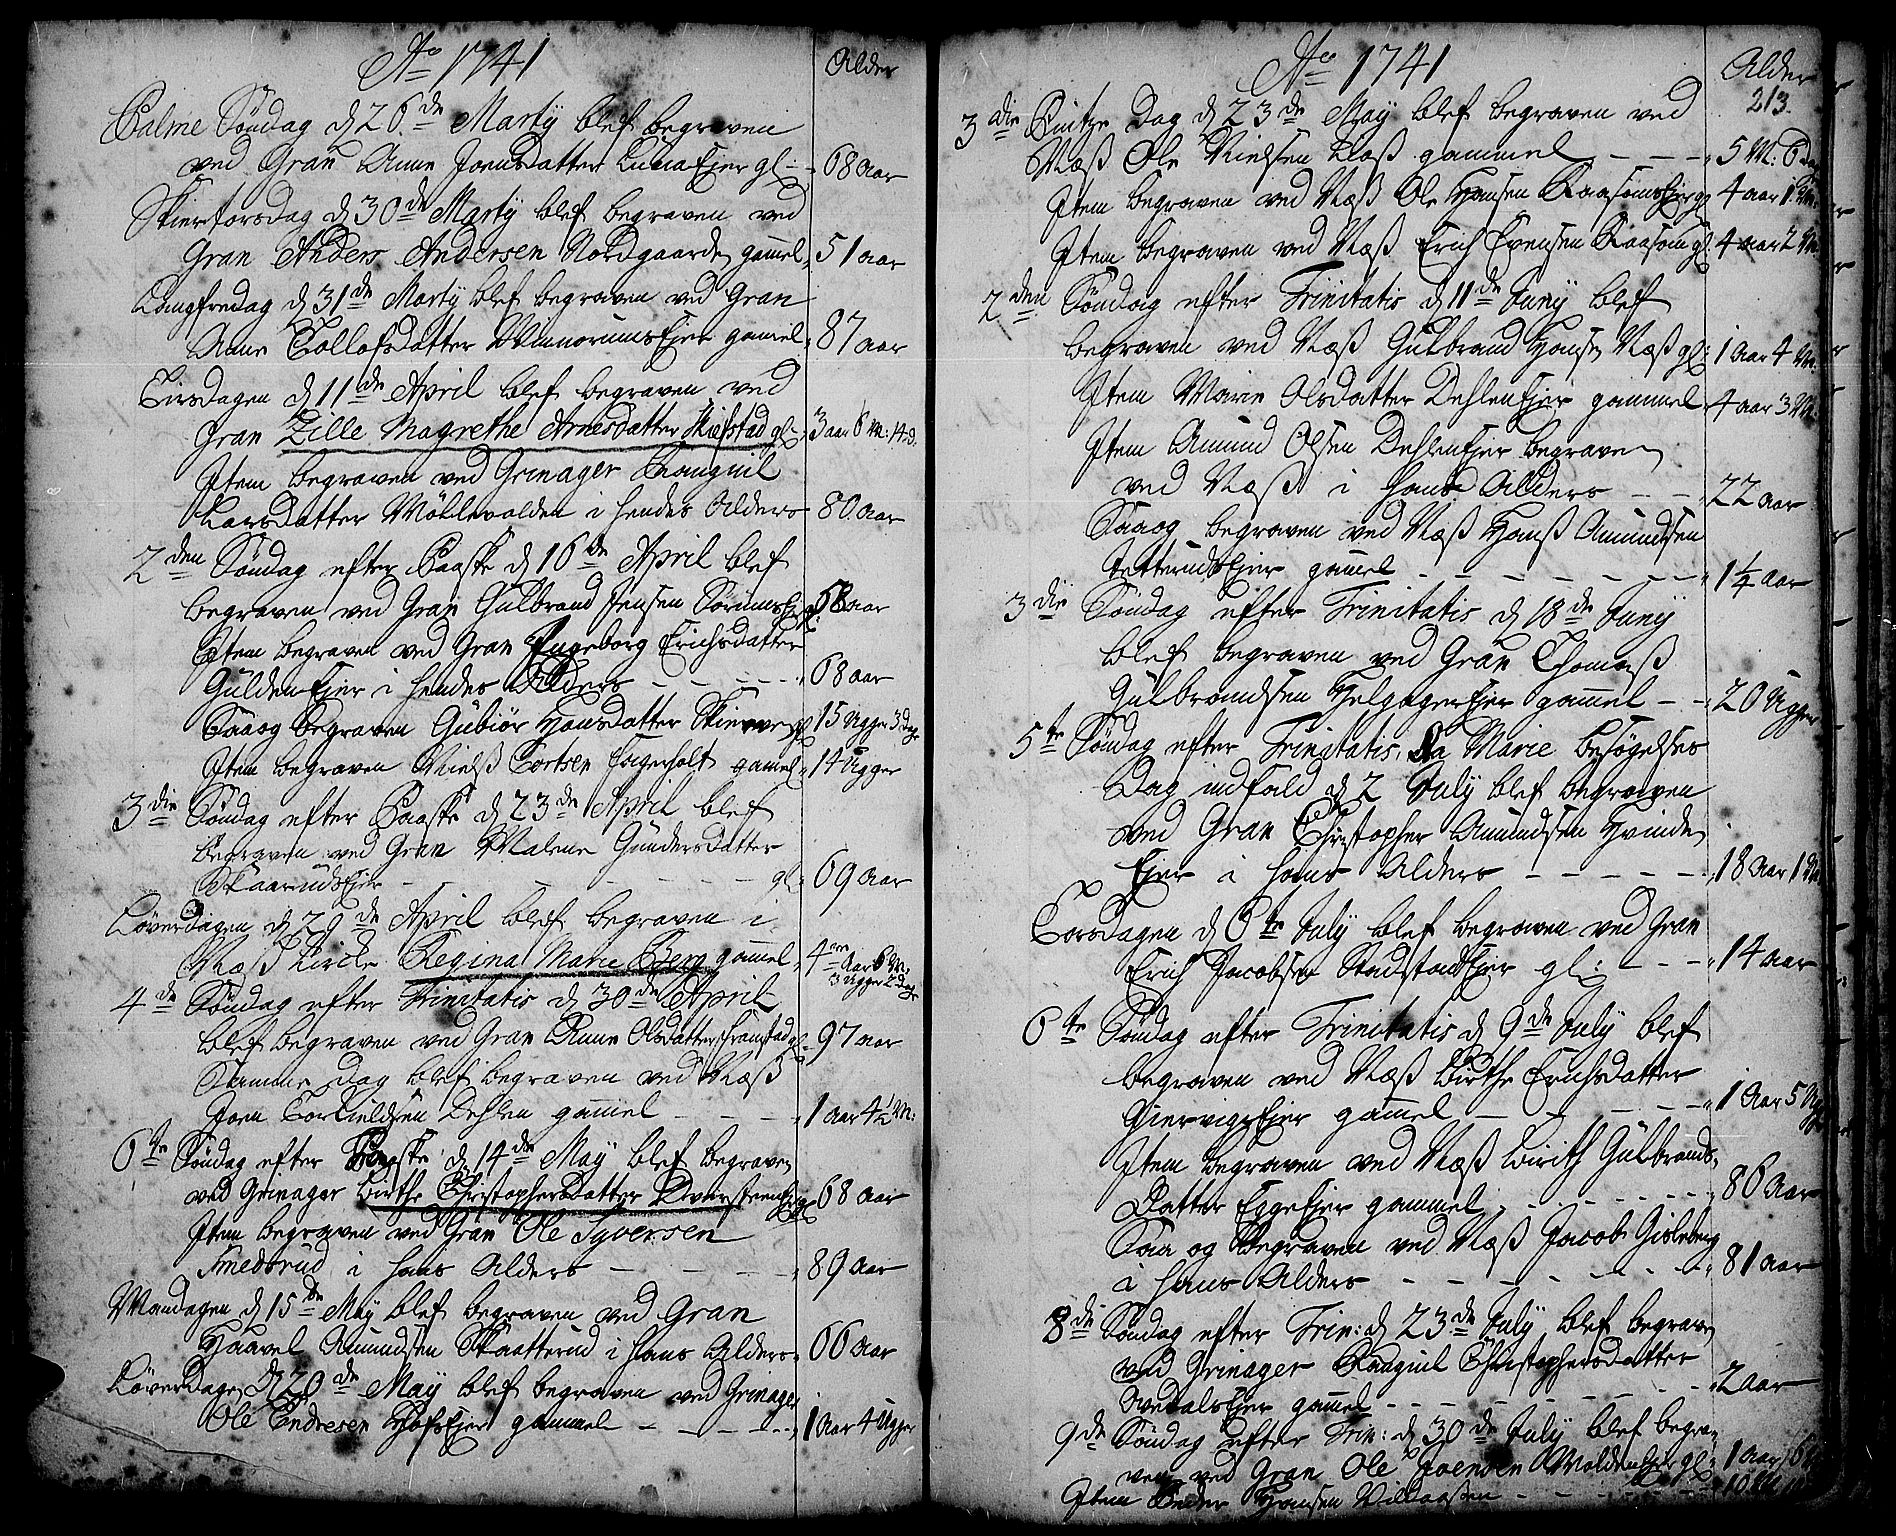 Ao 1741
Alder
Palme Søndag d 26de Martÿ blef begraven
ved Gran Anne Jornsdatter gl: 68 aar
Skiertorsdag d 30de Martÿ blef begraven ved
Gran Anders Andersen Nordgaarde gamel 51 aar
Langfredag d 31de Martÿ blef begraven ved Gran
Anne Tollofsdatter gamel 87 aar
Tirsdagen d 11de April blef begraven ved
Gran Zille Magrethe Arnesdatter Kiefstad gl: 3 aar 6 M: 14 d.
Item begraven ved Grinager Ranguil
Larsdatter Möllevolden i hendes Alders 80 aar
2den Søndag efter Paaske d 16de April blef
begraven ved Gran Gulbrand Jensen 58 aar
Item begraven ved Gran Ingeborg Erichsdatter
Gulden Eier i hendes Alders 68 aar
Saaog begraven Gubiör Hansdatter gl 15 Ugger 3 dage
Item begraven Niels Tortsen gamel 14 Ugger
3die Søndag efter Paaske d 23de April blef
begraven ved Gran Malene Gundersdatter
Skaaruds Eier gl: 69 aar
Løverdagen d 29de April blef begraven i
Næss Kircke Regina Marie Bierg gamel 4 Aar 6 M:
3 Ugger 2 dage
4de Søndag efter Trinitatis d 30de April
blef begraven ved Gran Anne Olsdatter gl: 97 aar
Samme Dag blef begraven ved Næss
Joen Torkieldsen Dehlen gamel 1 aar 4½ M:
6te Søndag efter Paaske d 14de May blef begraven
ved Grinager Birthe Christophersdatter gl 68 aar
Item begraven ved Gran Ole Syversen
Smedsrud i hans Alders 89 aar
Mandagen d 15de May blef begraven ved Gran
Haavel Amundsen Skaatterud i hans Alders 66 aar
Løverdagen d 20de May blef begraven ved Grinager
Ole Endresen Hofs Eier gammel 1 Aar 4 Ugger
Ao 1741
Alder
213.
3die Pintze Dag d 23de May blef begraven ved
Næss Ole Nielsen Næss gammel 5 M: 6 da
Item begraven ved Næss Ole Hansen gl 4 aar 1 M.
Item begraven ved Næss Erich Evensen Raasom gl: 4 aar 2 M
2den Søndag efter Trinitatis d 11de Junÿ blef
begraven ved Næss Gulbrand Hansen Næss gl: 1 Aar 4 M.
Item Marie Olsdatter Dehlen Eier gammel 4 aar 3 M.
Item Amund Olsen Dehlen Eier begraven
ved Næss i hans Alders 22 aar
Saaog begraven ved Næss Hans Amundsen
gamel 1¼ aar
3die Søndag efter Trinitatis d 18de Junÿ
blef begraven ved Gran Thomas
Gulbrandsen Helgager Eier gammel 20 Ugger
5te Søndag efter Trinitatis, da Marie Besøgelses
Dag indfald d 2 July blef begraven
ved Gran Christopher Amundsen Hvinde
Eier i hans Alders 18 Aar 1 M
Torsdagen d 6te July blef begraven ved Gran
Erich Jacobsen Stadstad Eier gl: 14 aar
6te Søndag efter Trinitatis d 9de July blef
begraven ved Næss Birthe Erichsdatter
gamel 1 Aar 5 Ug
Item begraven ved Næss Birith Gulbrands
Datter Egge Eier gammel 86 Aar
Saa og Begraven ved Næss Jacob Gisleberg
i hans Alders 81 aar
8de Søndag efter Trin: d 23de July blef begraven
ved Grinager Ranguil Christophersdatter
Ovedals Eier gamel 2 aar
9de Søndag efter Trin: d 30de July blef begra-
ven ved Gran Ole Joensen Molden Eier gl: 1 aar 6
Item Peder Hansen 10 M